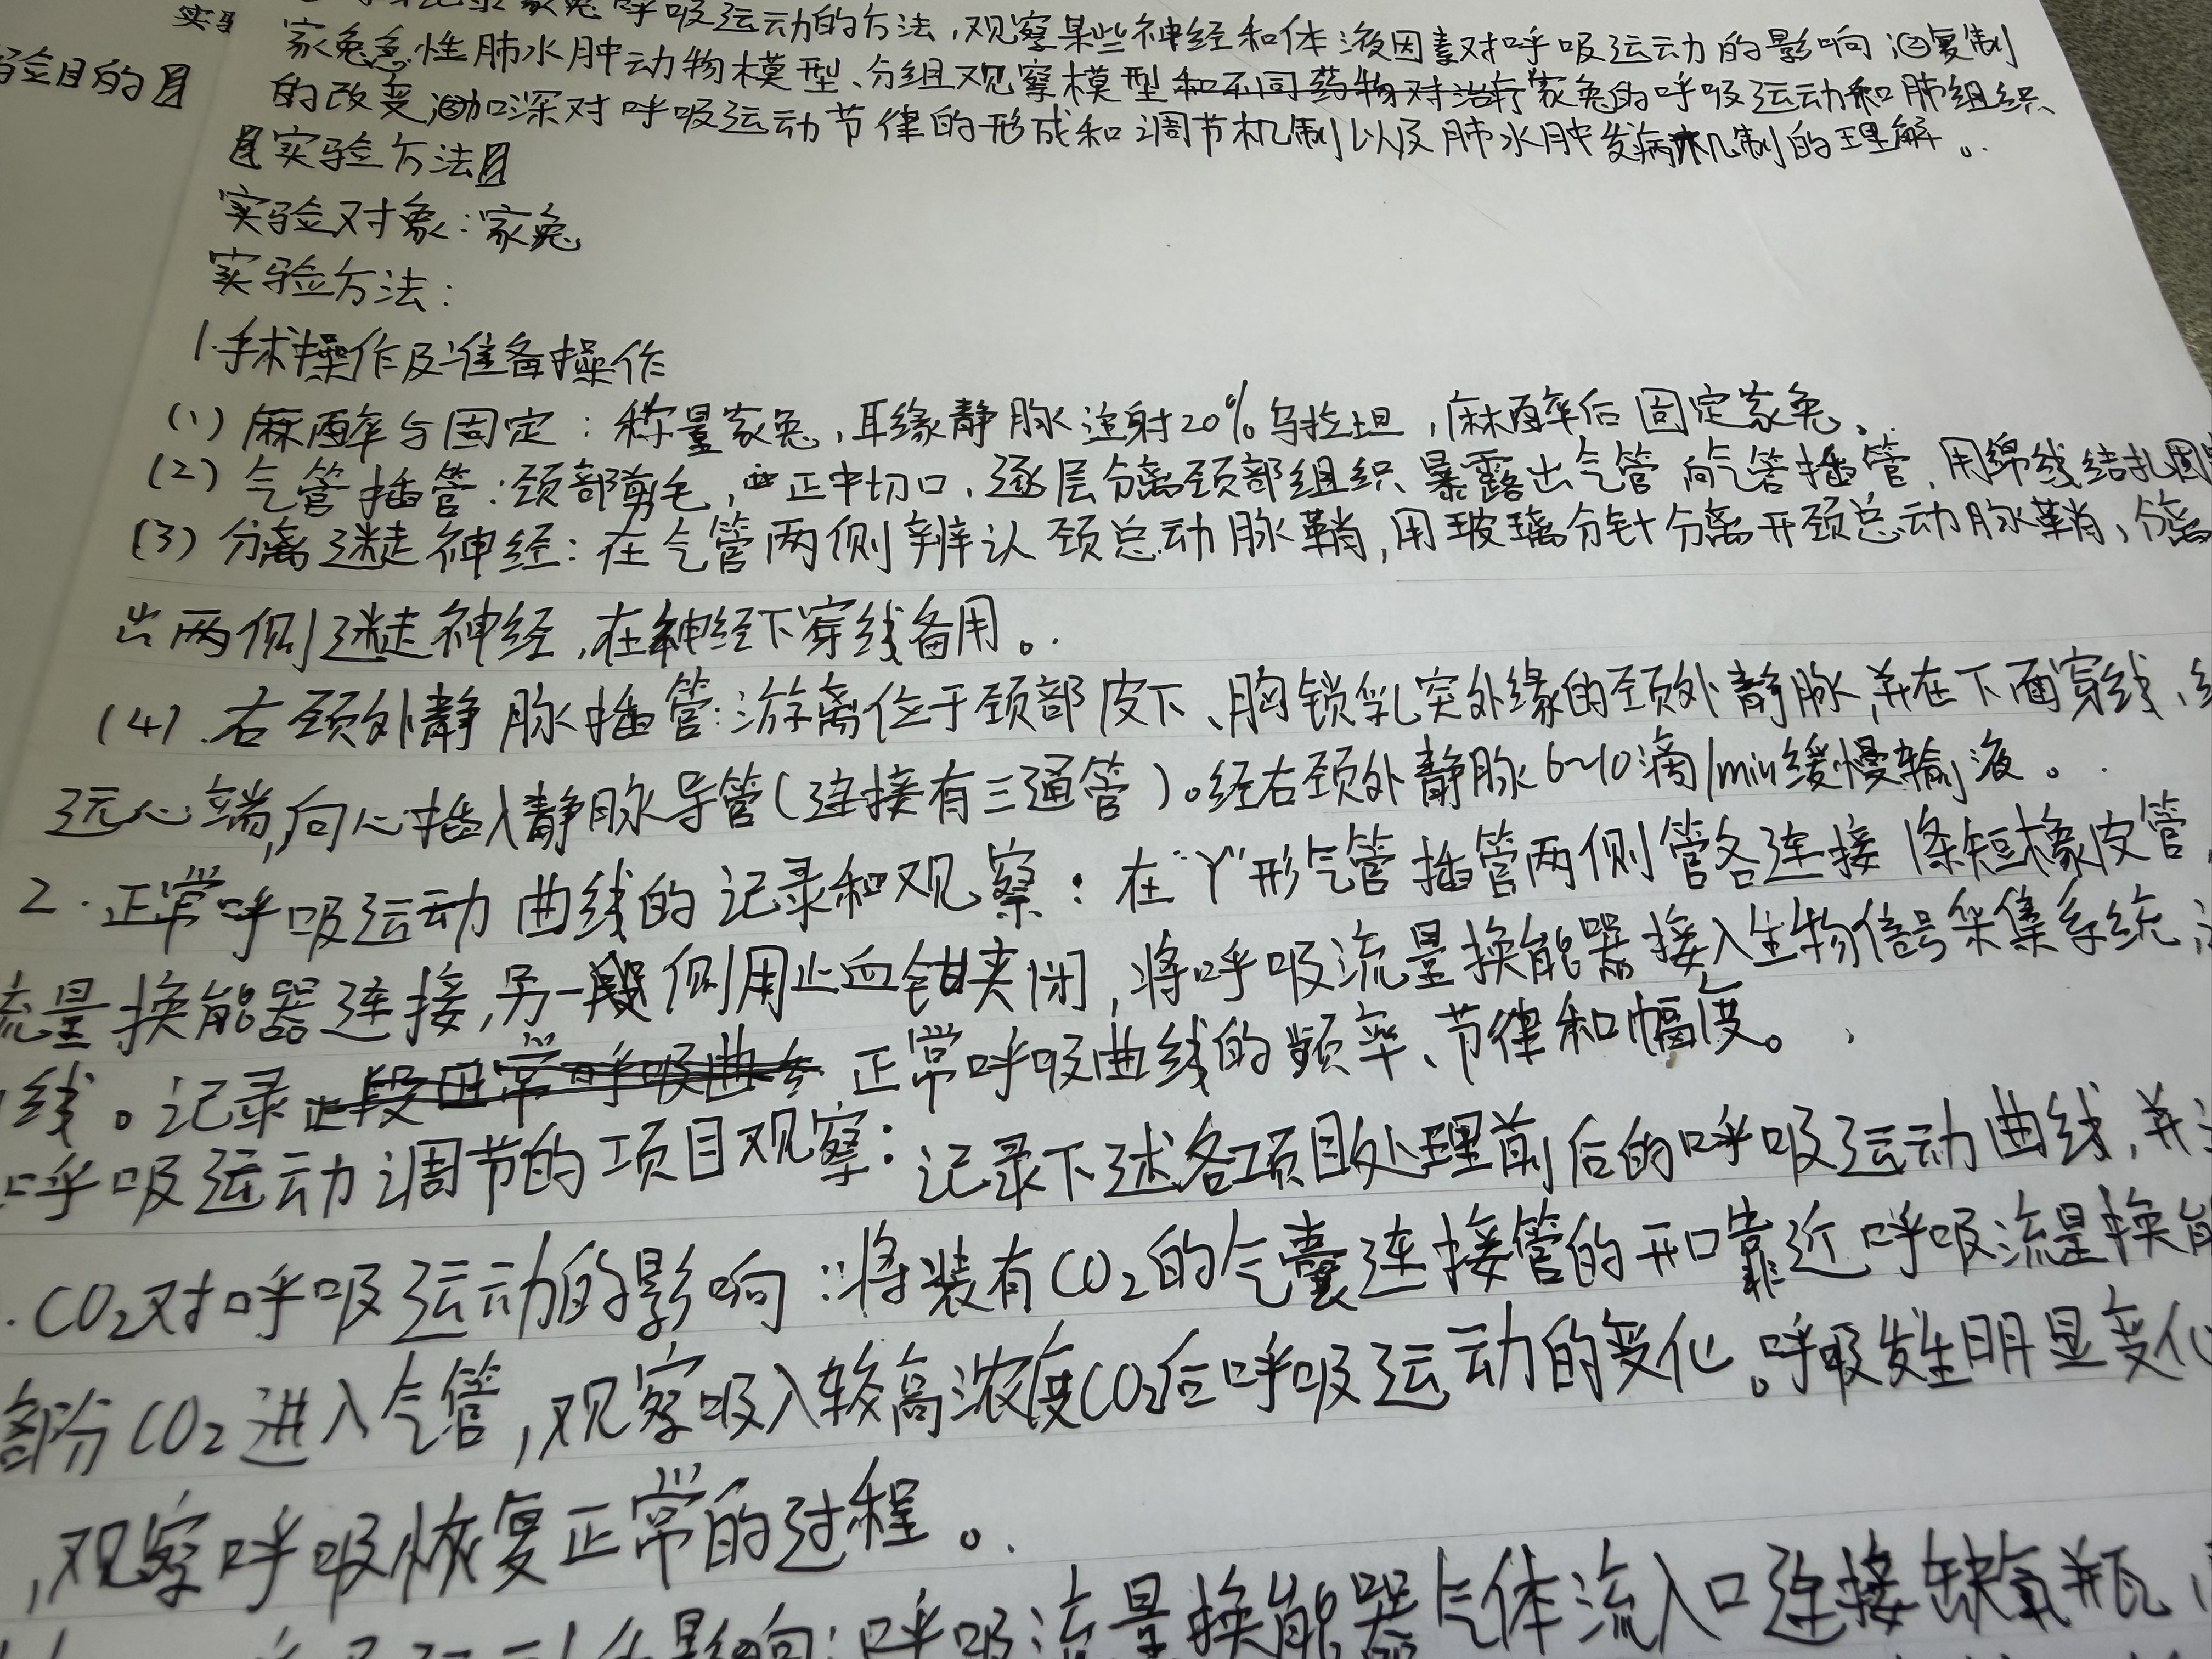 实验
记录家兔呼吸运动的方法,观察某些神经和体液因素对呼吸运动的影响;②复制
验目的】
家兔急性肺水肿动物模型、分组观察模型和不同药物对治疗家兔的呼吸运动和肺组织
的改变;③加深对呼吸运动节律的形成和调节机制以及肺水肿发病机制的理解。
【实验方法】
实验对象:家兔
实验方法:
1.手术操作及准备操作
(1)麻醉与固定:称量家兔,耳缘静脉注射20%乌拉坦,麻醉后固定家兔。
(2)气管插管:颈部剪毛,正中切口,逐层分离颈部组织、暴露出气管向气管插管,用绵线结扎固
(3)分离迷走神经:在气管两侧辨认颈总动脉鞘,用玻璃分针分离开颈总动脉鞘、分离
出两侧迷走神经,在神经下穿线备用。
(4).右颈外静脉插管:游离位于颈部皮下、胸锁乳突外缘的颈外静脉,并在下面穿线、
远心端,向心插入静脉导管(连接有三通管)。经右颈外静脉6~10滴/min缓慢输液。
2.正常呼吸运动曲线的记录和观察:在“Y”形气管插管两侧管各连接1条短橡皮管,
流量换能器连接,另一侧用止血钳夹闭,将呼吸流量换能器接入生物信号采集系统,
线。记录正常呼吸曲线的频率、节律和幅度。
呼吸运动调节的项目观察:记录下述各项目处理前后的呼吸运动曲线,并
.CO₂对呼吸运动的影响:将装有CO₂的气囊连接管的开口靠近呼吸流量换能
部分CO₂进入气管,观察吸入较高浓度CO₂后呼吸运动的变化。呼吸发生明显变化
,观察呼吸恢复正常的过程。
影响:呼吸流量换能器气体流入口连接缺氧瓶,